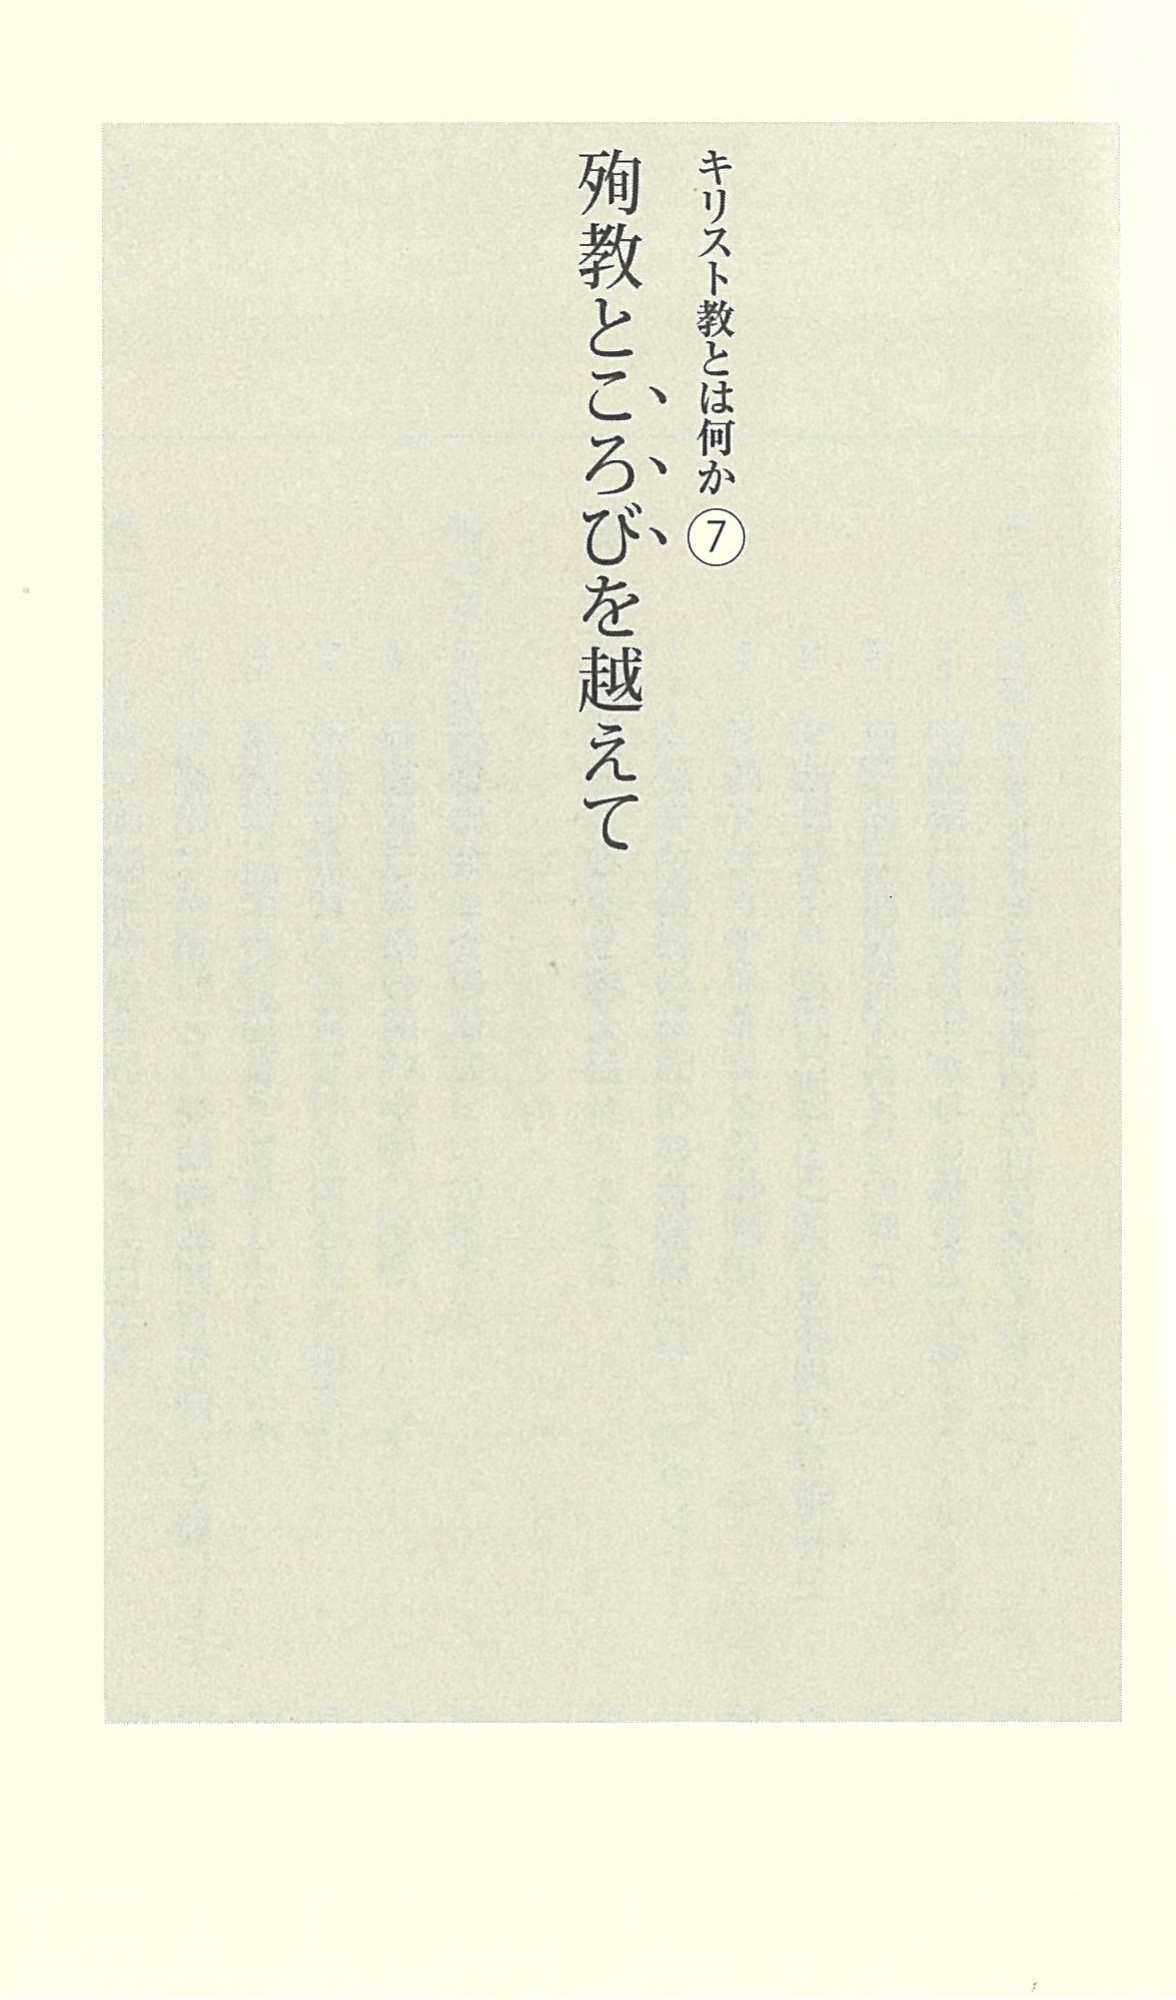 キリスト教とは何か⑦
殉教ところびを越えて